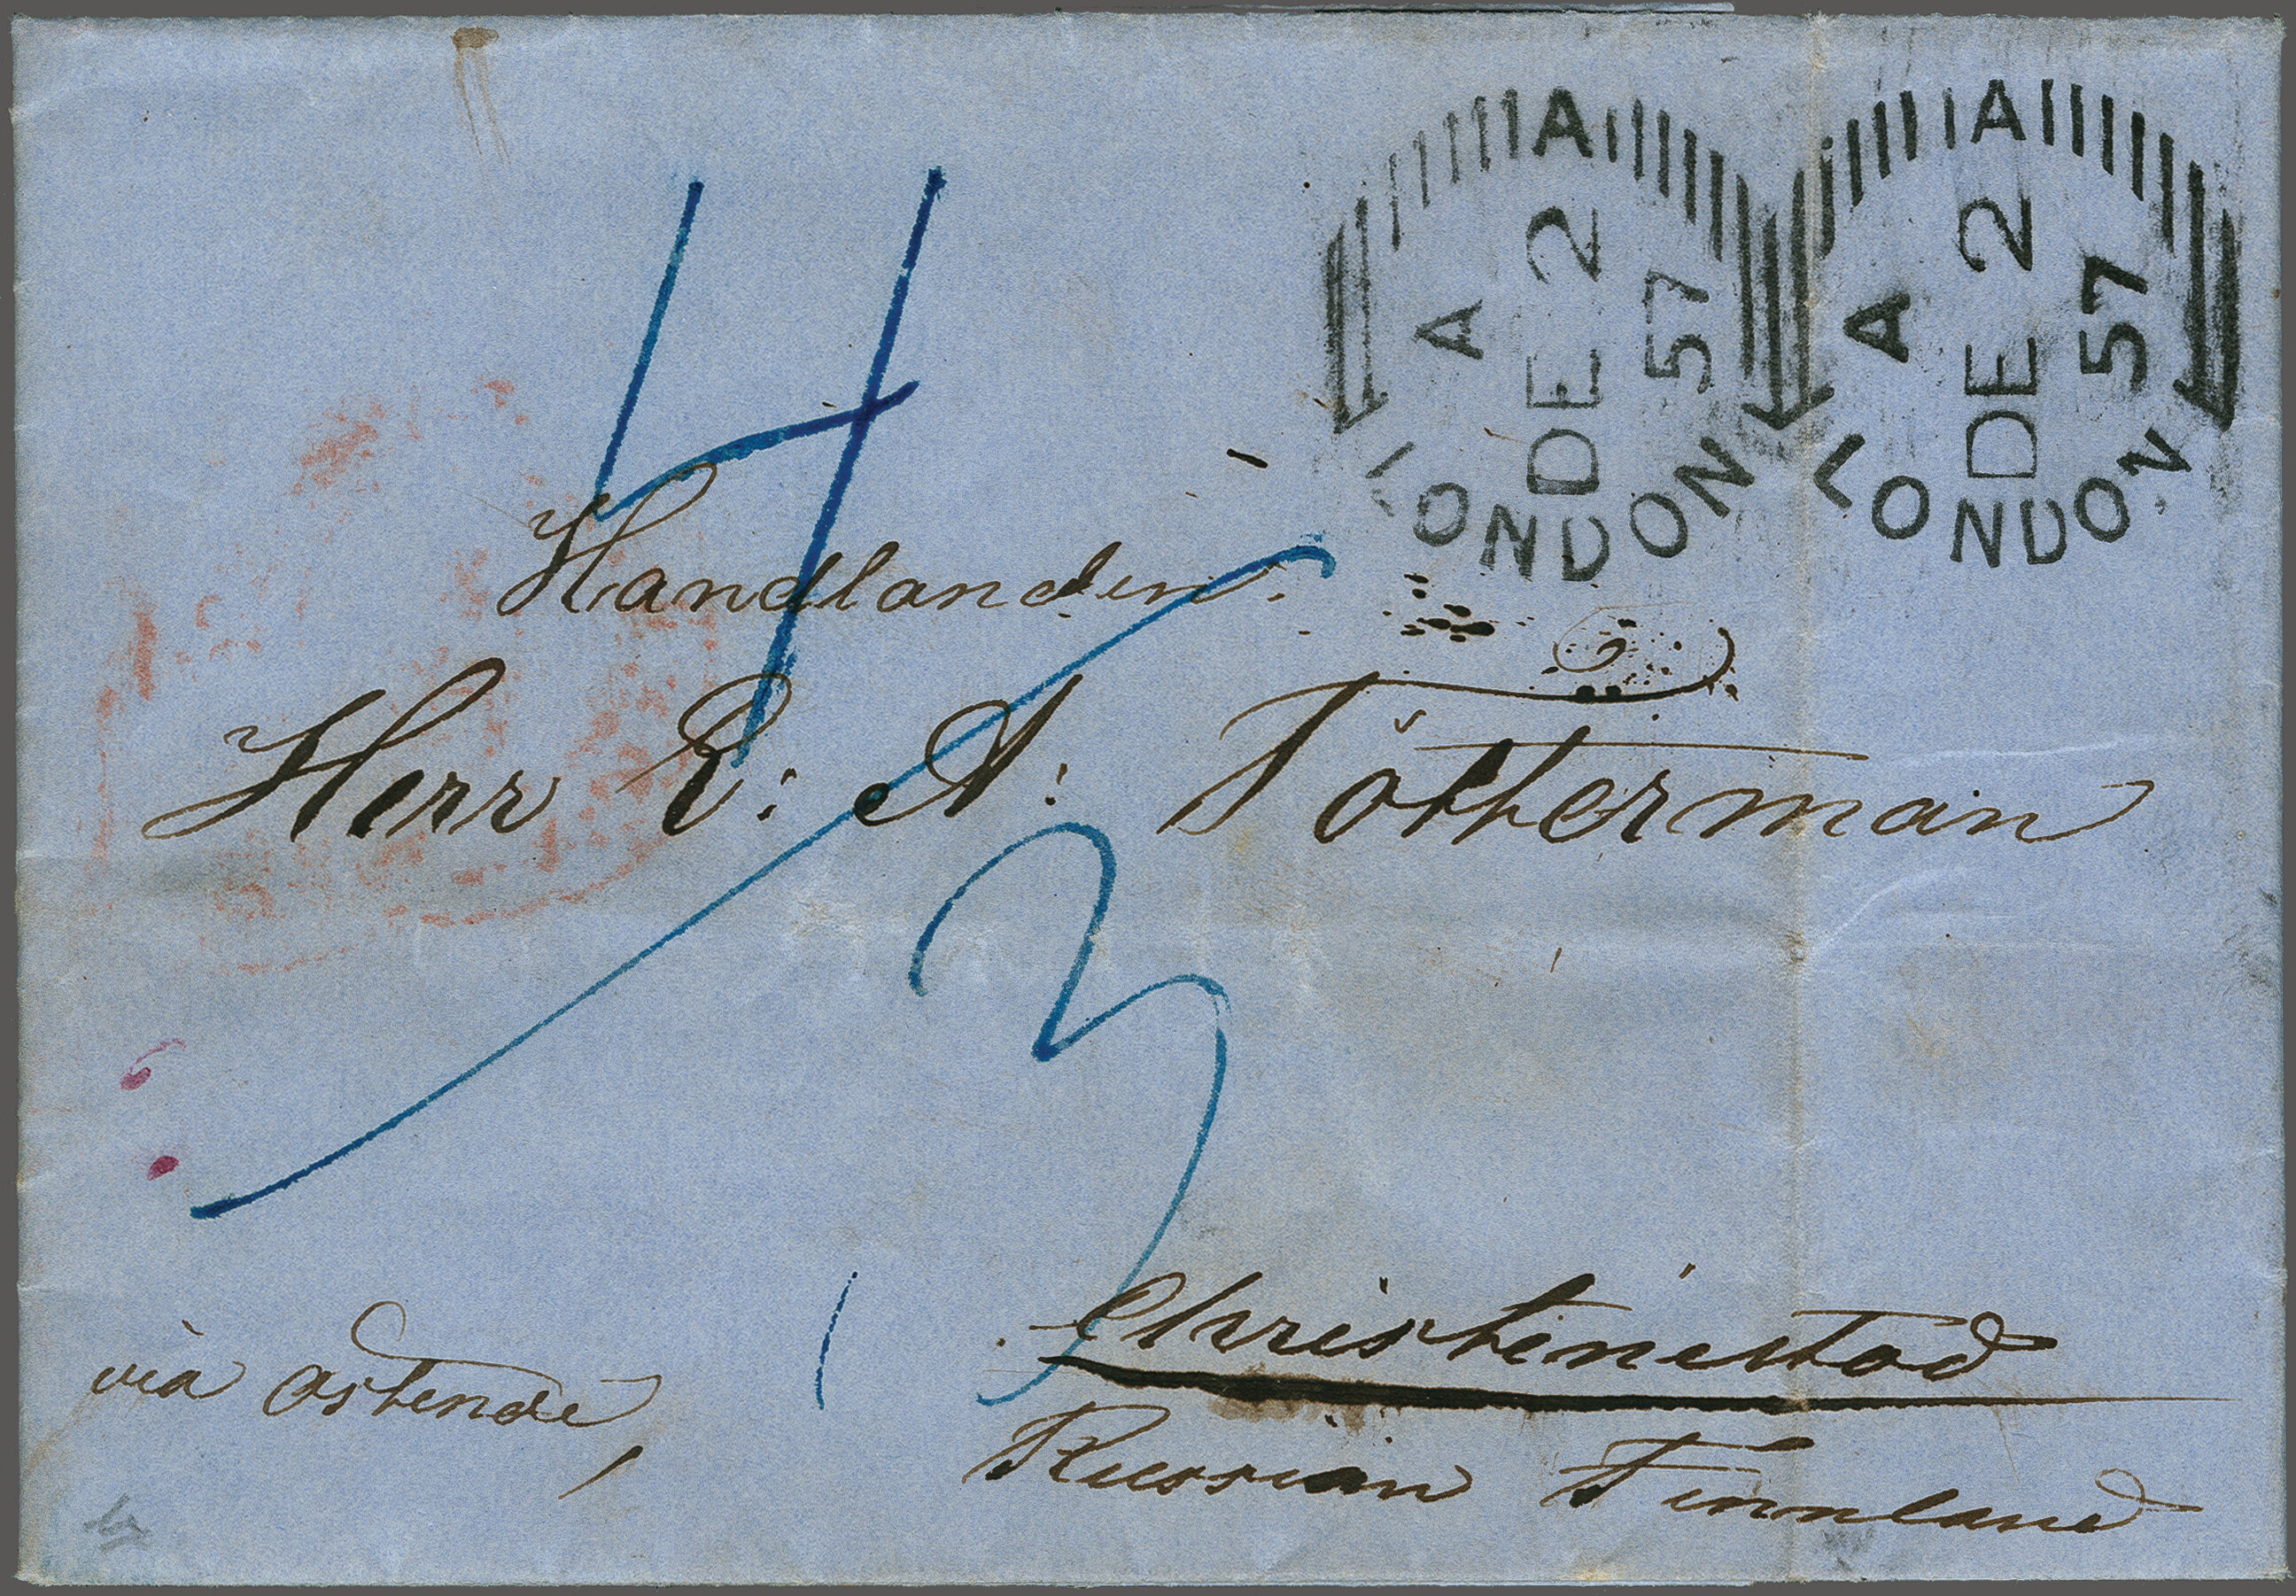 A
A
DE 2
57
LONDON
A
A
DE 2
57
LONDON
4
Handlanden
Herr E: A: Tötterman
3
Christinestad
via Ostende
Russian Finnland